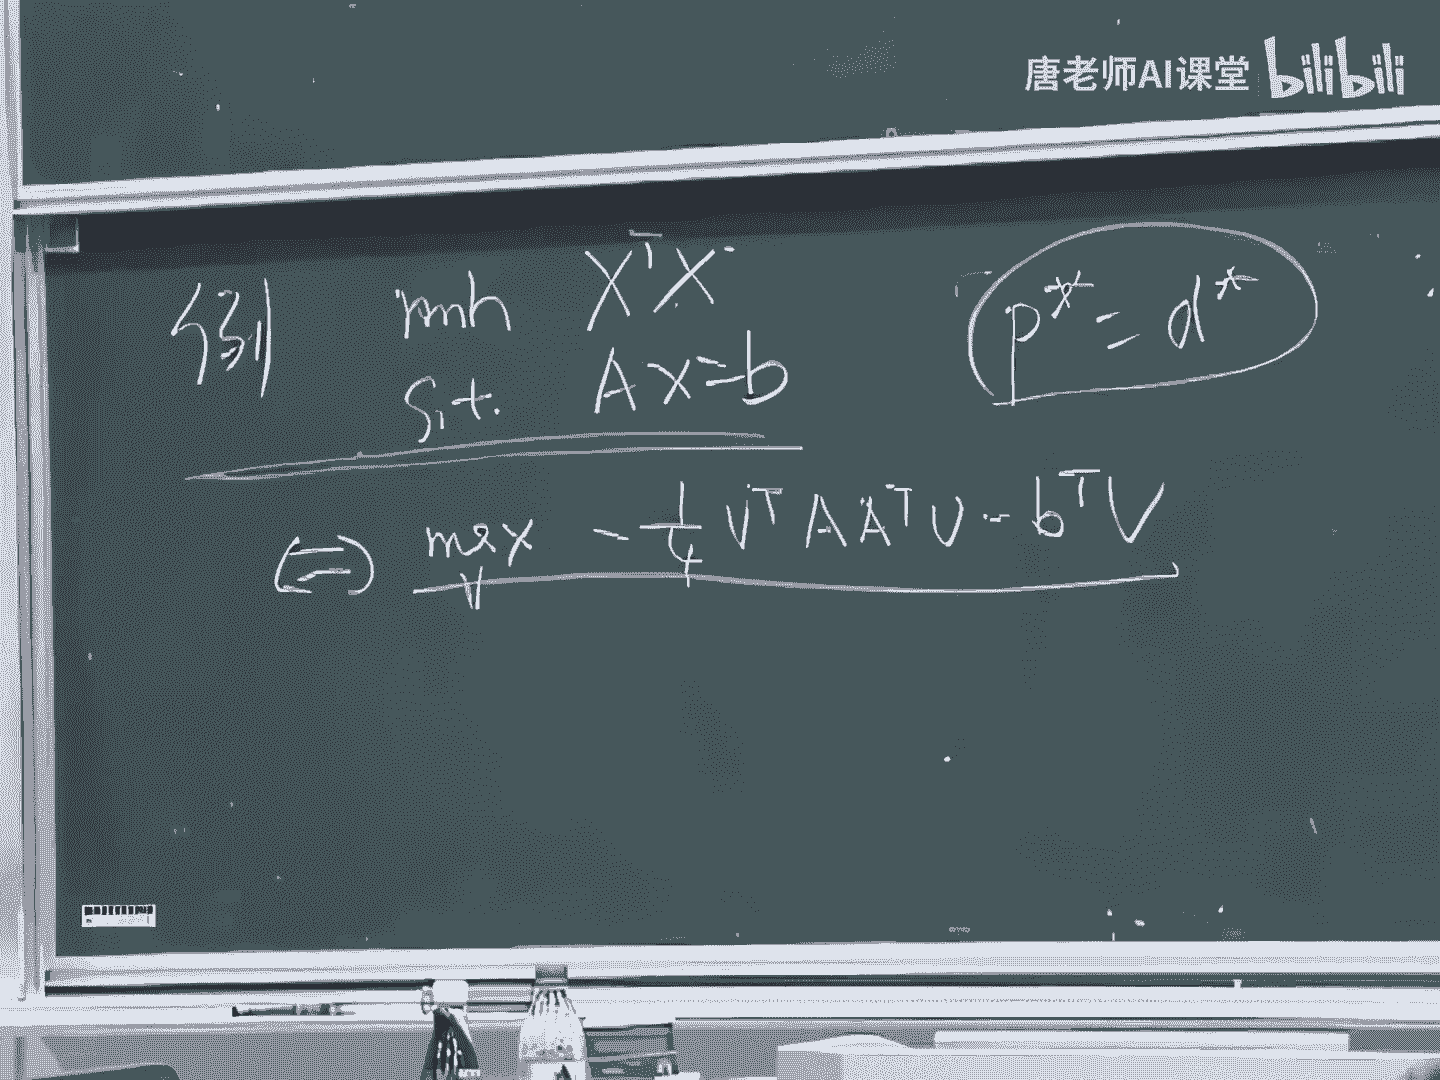 唐老师AI课堂 bilibili
例 min XᵀX
s.t. AX=b
P* = d*
(=) max -1/4 Vᵀ A Aᵀ V - bᵀ V
V